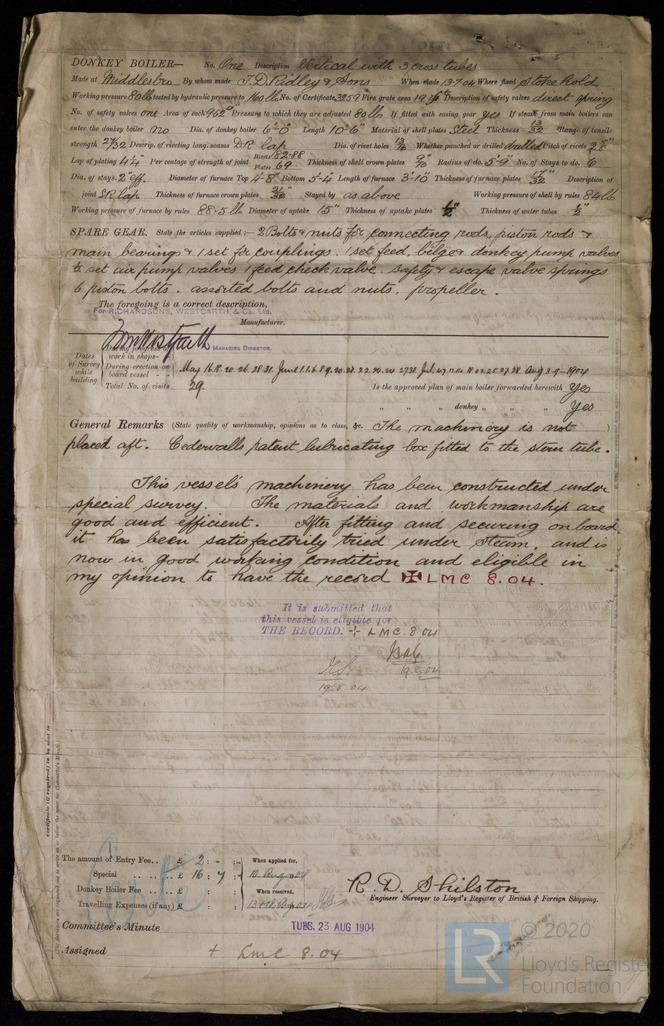 DONKEY BOILER— No. One Description Vertical with 3 cross tubes
Made at Middlesbro By whom made T.D. Ridley & Sons When made 13.7.04 Where fixed Stokehold
Working pressure 80 lb tested by hydraulic pressure to 160 lb No. of Certificate 3359 Fire grate area 19 Description of safety valves direct spring
No. of safety valves one Area of each 9.62 Pressure to which they are adjusted 80 lb If fitted with easing gear yes If steam from main boilers can
enter the donkey boiler no Dia. of donkey boiler 6'-0" Length 10'-6" Material of shell plates Steel Thickness 13/32 Range of tensile
strength 27/32 Descrip. of riveting long. seams D.R. lap Dia. of rivet holes Whether punched or drilled drilled Pitch of rivets
Lap of plating 4¼ Per centage of strength of joint Rivets 82.88 Plates 69 Thickness of shell crown plates Radius of do. 5'-9" No. of Stays to do. 6
Dia. of stays 2" eff. Diameter of furnace Top 4'-8" Bottom 5'-4 Length of furnace 3'-10" Thickness of furnace plates Description of
joint S.R. lap Thickness of furnace crown plates Stayed by as above Working pressure of shell by rules 84 lb
Working pressure of furnace by rules 88.5 lb Diameter of uptake 15" Thickness of uptake plates Thickness of water tubes ½"
SPARE GEAR. State the articles supplied:— 2 Bolts & nuts for connecting rods, piston rods &
main bearings & 1 set for couplings. 1 set feed, bilge & donkey pump valves
½ set air pump valves 1 feed check valve. safety & escape valve springs
6 piston bolts. assorted bolts and nuts. propeller.
The foregoing is a correct description,
For RICHARDSONS, WESTGARTH & Co. Ltd.
Manufacturer.
MANAGING DIRECTOR.
Dates of Survey while building
During progress of work in shops - -
During erection on board vessel - - -
Total No. of visits 29
Is the approved plan of main boiler forwarded herewith Yes
" " " donkey " " " Yes
General Remarks (State quality of workmanship, opinions as to class, &c. The machinery is not
placed aft. Cederwalls patent lubricating box fitted to the stern tube.
This vessel's machinery has been constructed under
special survey. The materials and workmanship are
good and efficient. After fitting and securing on board
it has been satisfactorily tried under steam, and is
now in good working condition and eligible in
my opinion to have the record ✠ LMC 8.04.
It is submitted that
this vessel is eligible for
THE RECORD. + LMC 8.04
19.8.04
19.8.04
The amount of Entry Fee . . £ 2 : - : - When applied for,
Special . . . . £ 16 : 7 : 10 Aug 04
Donkey Boiler Fee . . £ : : When received,
Travelling Expenses (if any) £ : :
R. D. Shilston
Engineer Surveyor to Lloyd's Register of British & Foreign Shipping.
Committee's Minute TUES. 23 AUG 1904
Assigned + LMC 8.04
© 2020
LR Lloyd's Register
Foundation